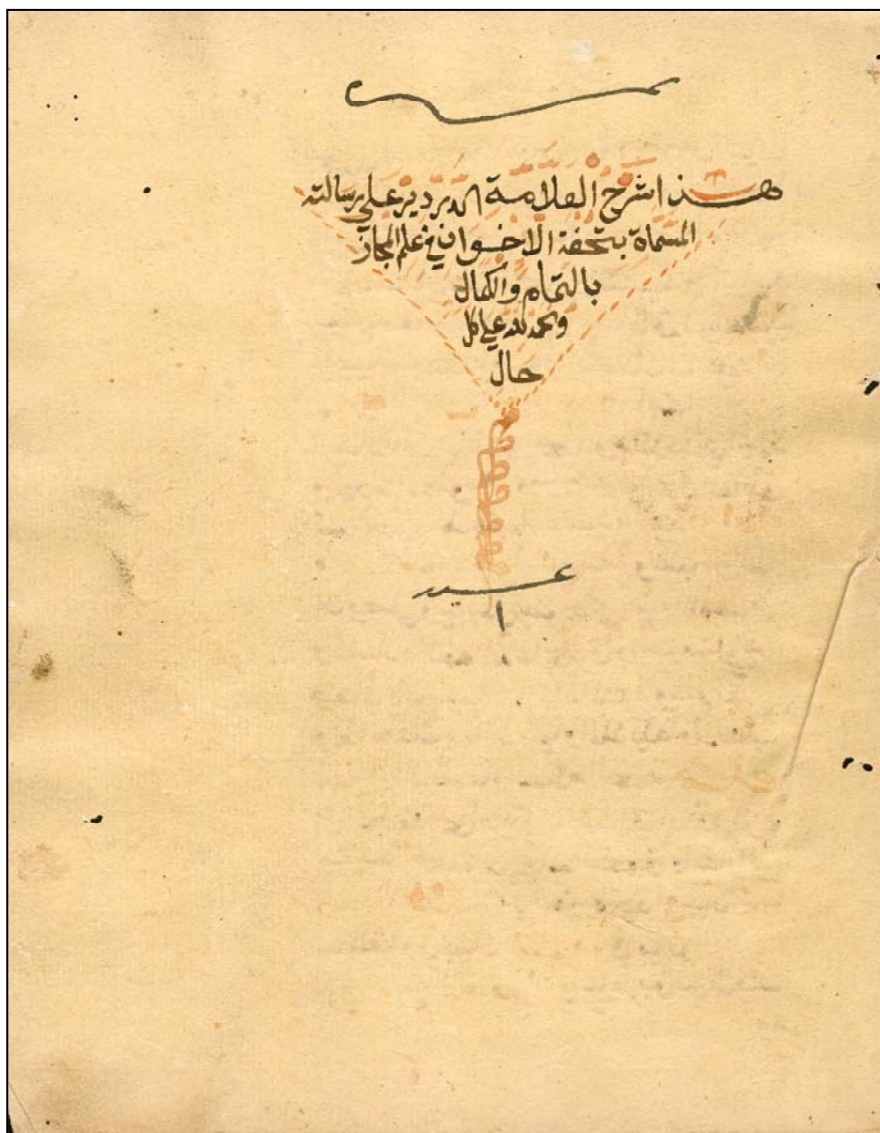 هذا شرح العلامة الدردير على رسالته
المسماة بتحفة الاخوان في علم المجاز
بالتمام والكمال
والحمد لله على كل
حال